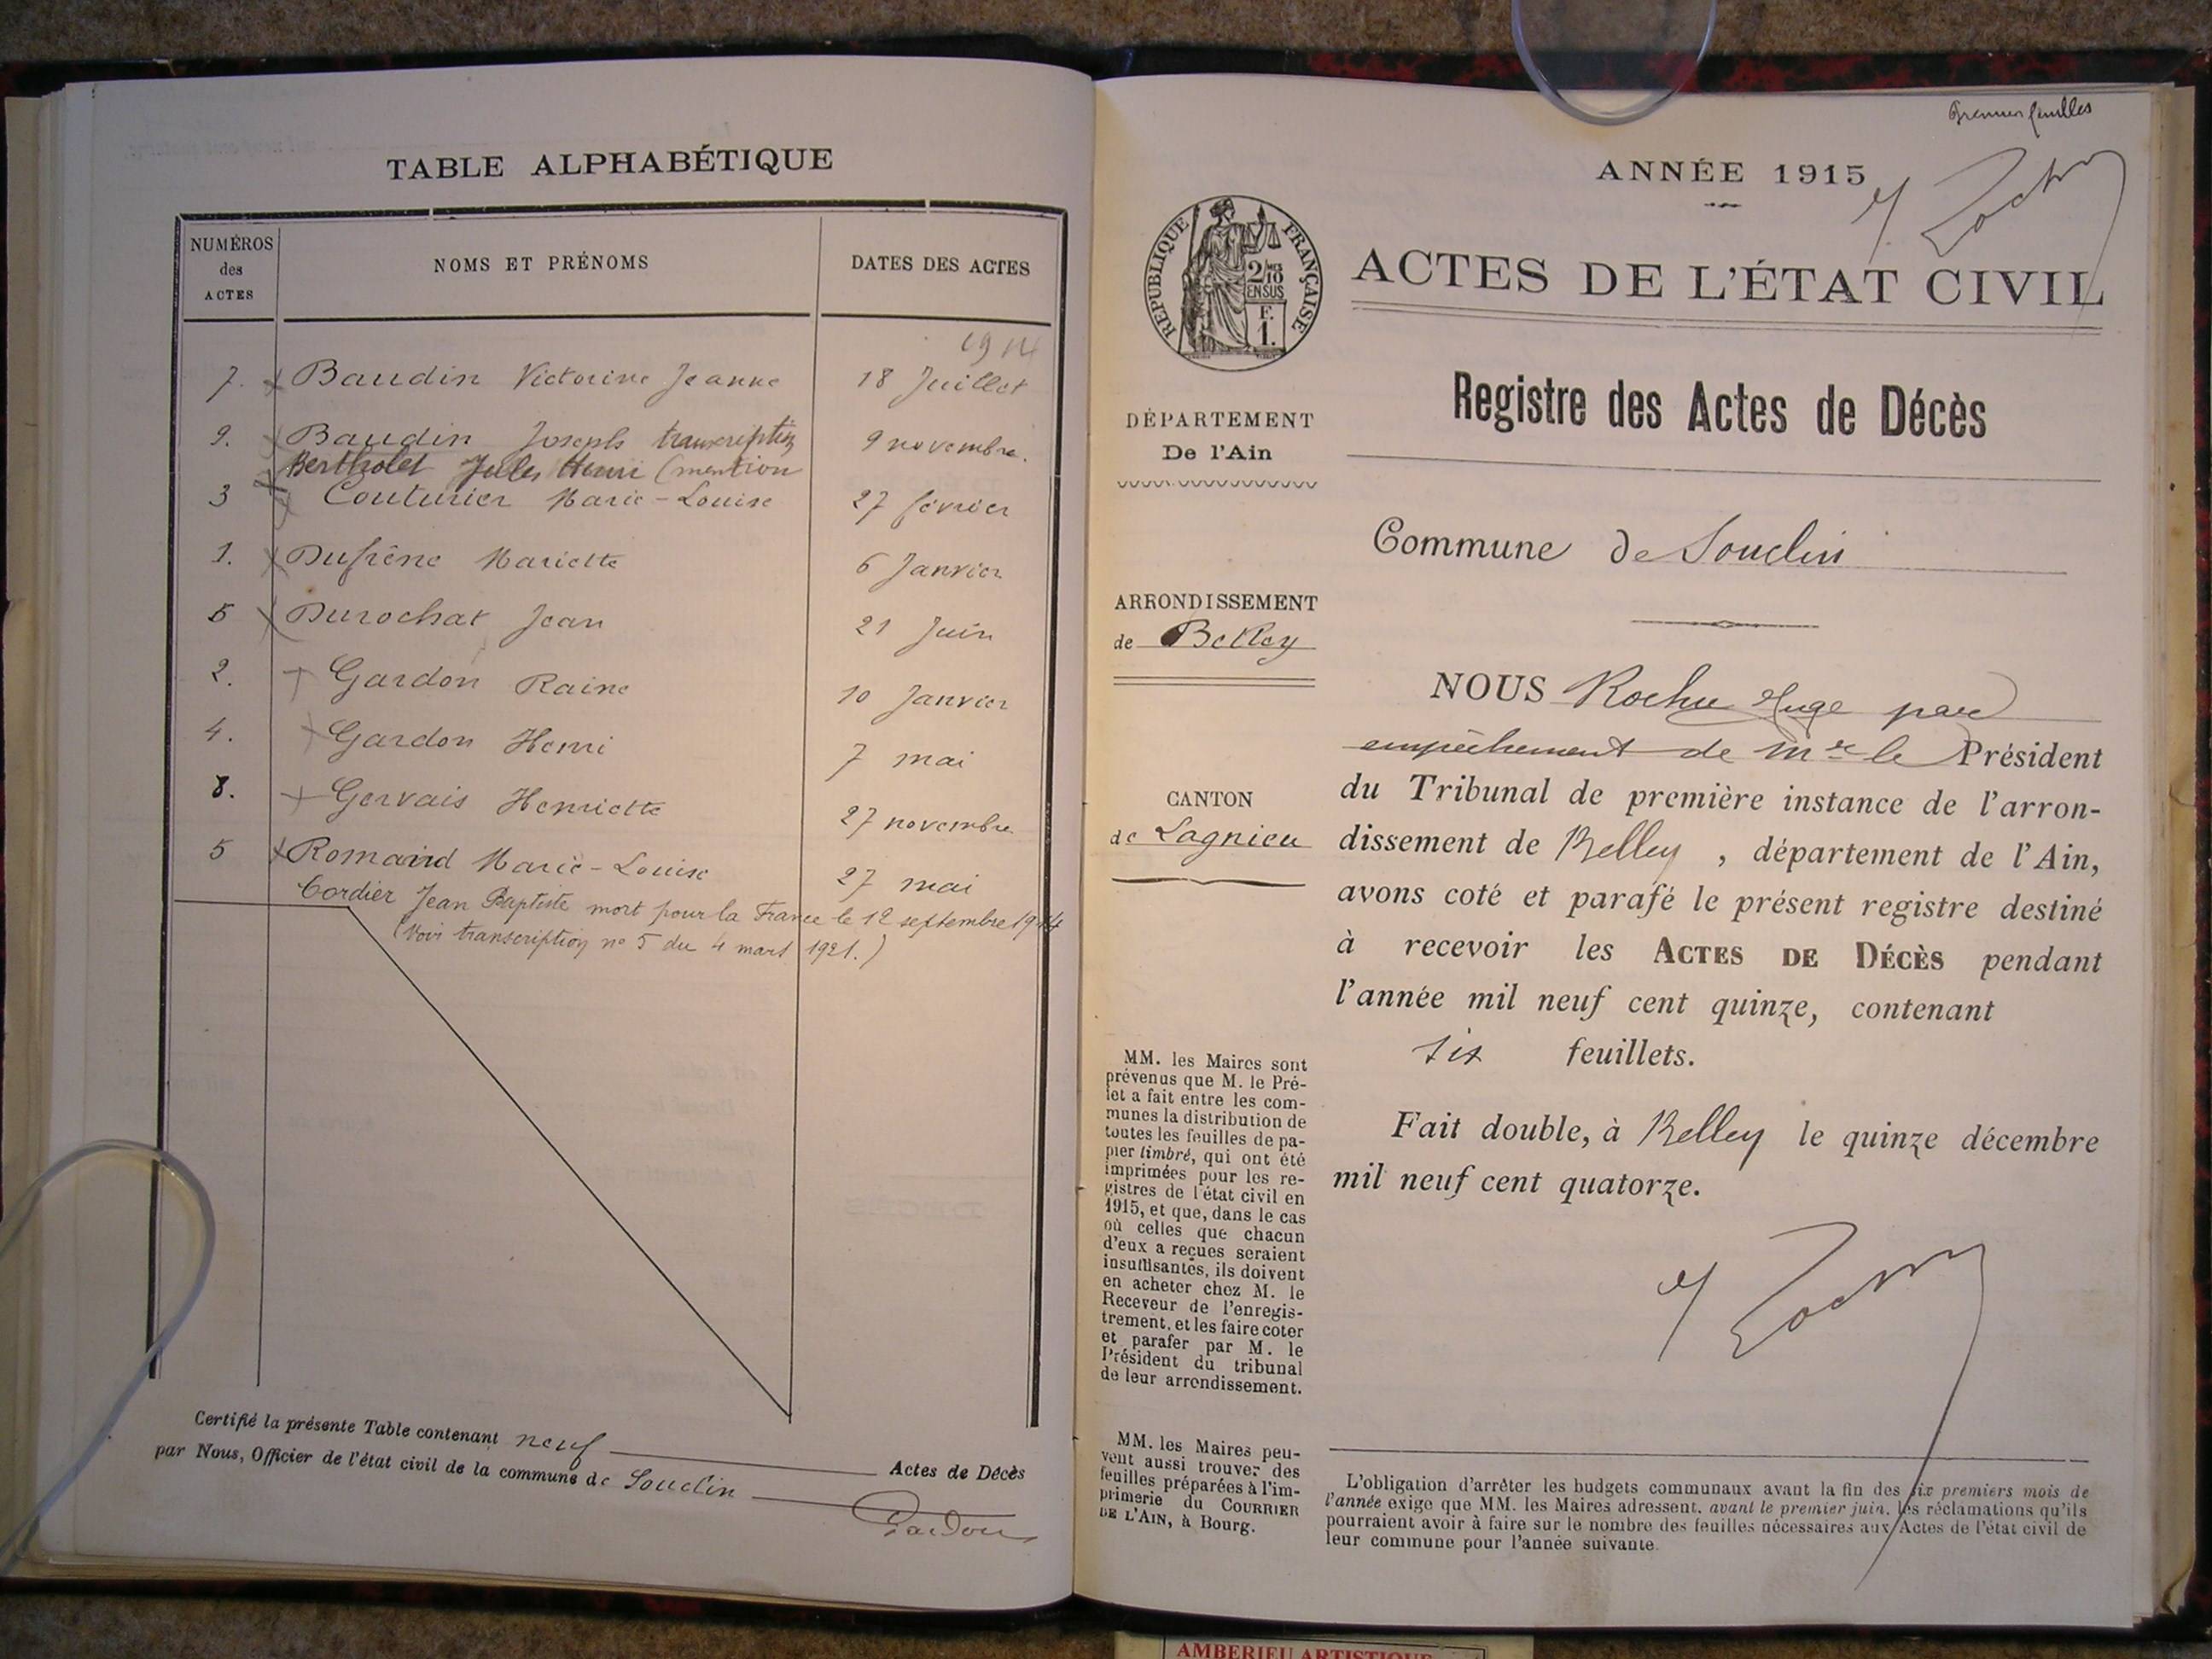 TABLE ALPHABÉTIQUE
NUMÉROS
des
ACTES
NOMS ET PRÉNOMS
DATES DES ACTES
1914
7. Baudin Victorine Jeanne 18 Juillet
9. Baudin Joseph transcription 9 novembre.
Bertholet Jules Henri (mention
3 Couturier Marie-Louise 27 février
1. Dufrêne Mariette 6 Janvier
5 Durochat Jean 21 Juin
2. Gardon Raine 10 Janvier
4. Gardon Henri 7 mai
8. Gervais Henriette 27 novembre
5 Romand Marie-Louise 27 mai
Cordier Jean Baptiste mort pour la France le 12 septembre 1914
(Voir transcription n° 5 du 4 mars 1921.)
Certifié la présente Table contenant neuf Actes de Décès
par Nous, Officier de l'état civil de la commune de Souclin
Gardon
feuilles
ANNÉE 1915
RÉPUBLIQUE FRANÇAISE
2/10
EN SUS
F.
1.
ACTES DE L'ÉTAT CIVIL
Registre des Actes de Décès
DÉPARTEMENT
De l'Ain
Commune de Souclin
ARRONDISSEMENT
de Belley
NOUS Rochu Juge par
empêchement de Mr le Président
du Tribunal de première instance de l'arron-
dissement de Belley , département de l'Ain,
avons coté et parafé le présent registre destiné
à recevoir les ACTES DE DÉCÈS pendant
l'année mil neuf cent quinze, contenant
six feuillets.
Fait double, à Belley le quinze décembre
mil neuf cent quatorze.
CANTON
de Lagnieu
MM. les Maires sont
prévenus que M. le Pré-
fet a fait entre les com-
munes la distribution de
toutes les feuilles de pa-
pier timbré, qui ont été
imprimées pour les re-
gistres de l'état civil en
1915, et que, dans le cas
où celles que chacun
d'eux a reçues seraient
insuffisantes, ils doivent
en acheter chez M. le
Receveur de l'enregis-
trement, et les faire coter
et parafer par M. le
Président du tribunal
de leur arrondissement.
MM. les Maires peu-
vent aussi trouver des
feuilles préparées à l'im-
primerie du COURRIER
DE L'AIN, à Bourg.
L'obligation d'arrêter les budgets communaux avant la fin des six premiers mois de
l'année exige que MM. les Maires adressent, avant le premier juin, les réclamations qu'ils
pourraient avoir à faire sur le nombre des feuilles nécessaires aux Actes de l'état civil de
leur commune pour l'année suivante.
AMBERIEU ARTISTIQUE